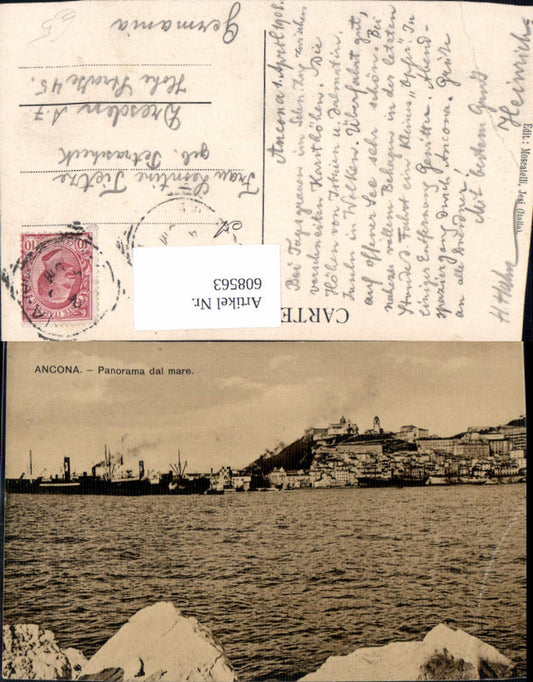 Ancona 1. April 1908.
Bei Tagesgrauen im schon zwischen
verschneiten Karsthöhen. Die
Höhen von Istrien u. Dalmatien.
Inseln in Wolken. Überfahrt gut,
auf offener See sehr schön. Bei
nahezu vollem Behagen in der letzten
Stunde d. Fahrt ein kleines „Opfer“. In
einiger Entfernung Gewitter. Abend-
spaziergang durch Ancona. Grüße
an alle
Mit bestem Gruß
Heinrich
H. Hahn
Edit: Moscatelli, Jesi (Italia).
CARTE
A
Frau Leontine Tietze
geb. Petrascheck
Dresden A 7
Hohe Straße 45.
Germania
63
10
10
Artikel Nr.
608563
ANCONA. – Panorama dal mare.